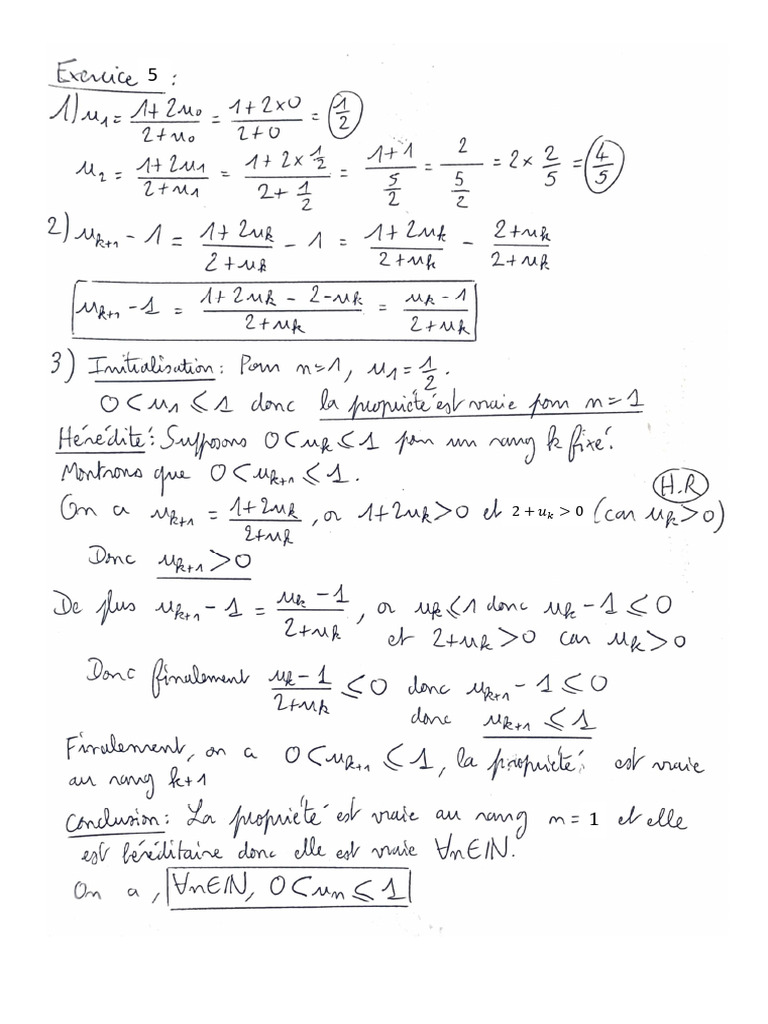 Exercice 5 :
1) u₁ = (1+2u₀)/(2+u₀) = (1+2×0)/(2+0) = 1/2
u₂ = (1+2u₁)/(2+u₁) = (1+2×1/2)/(2+1/2) = (1+1)/(5/2) = 2/(5/2) = 2×2/5 = 4/5
2) u_{k+1} - 1 = (1+2u_k)/(2+u_k) - 1 = (1+2u_k)/(2+u_k) - (2+u_k)/(2+u_k)
u_{k+1} - 1 = (1+2u_k - 2 - u_k)/(2+u_k) = (u_k - 1)/(2+u_k)
3) Initialisation : Pour n=1, u₁ = 1/2.
0 < u₁ ⩽ 1 donc la propriété est vraie pour n=1
Hérédité : Supposons 0 < u_k ⩽ 1 pour un rang k fixé.
Montrons que 0 < u_{k+1} ⩽ 1.
H.R
On a u_{k+1} = (1+2u_k)/(2+u_k), or 1+2u_k > 0 et 2 + u_k > 0 (car u_k > 0)
Donc u_{k+1} > 0
De plus u_{k+1} - 1 = (u_k - 1)/(2+u_k), or u_k ⩽ 1 donc u_k - 1 ⩽ 0
et 2+u_k > 0 car u_k > 0
Donc finalement (u_k - 1)/(2+u_k) ⩽ 0 donc u_{k+1} - 1 ⩽ 0
donc u_{k+1} ⩽ 1
Finalement, on a 0 < u_{k+1} ⩽ 1, la propriété est vraie
au rang k+1
Conclusion : La propriété est vraie au rang n = 1 et elle
est héréditaire donc elle est vraie ∀n∈ℕ.
On a, ∀n∈ℕ, 0 < u_n ⩽ 1